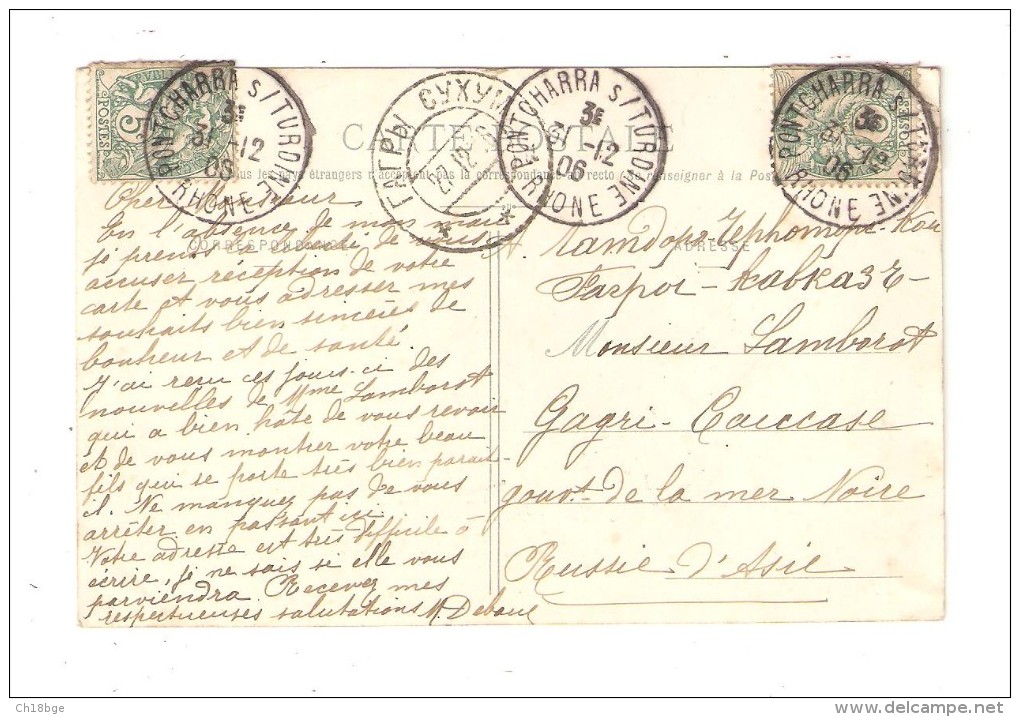 PONTCHARRA S/TURDINE
3E
31 -12
06
RHONE
5
POSTES
ГАГРЫ СУХУМ
27 12
PONTCHARRA S/TURDINE
3E
31 -12
06
RHONE
PONTCHARRA S/TURDINE
3E
31 12
06
RHONE
POSTES
CARTE POSTALE
Tous les pays étrangers n'acceptent pas la correspondance au recto (Se renseigner à la Poste)
CORRESPONDANCE
ADRESSE
Cher Monsieur
En l'absence de mon mari
je prends la de vous
accuser réception de votre
carte et vous adresser mes
souhaits bien sincères de
bonheur et de santé.
J'ai reçu ces jours-ci des
nouvelles de Mme Lamborot
qui a bien hâte de vous revoir
et de vous montrer votre beau
fils qui se porte très bien parait-
il. Ne manquez pas de vous
arrêter en passant ici.
Votre adresse est très difficile à
écrire, je ne sais si elle vous
parviendra. Recevez mes
respectueuses salutations M. Debaue
Кавказъ-
Monsieur Lamborot
Gagri-Caucase
gouvt de la mer Noire
Russie d'Asie
Ch18bge